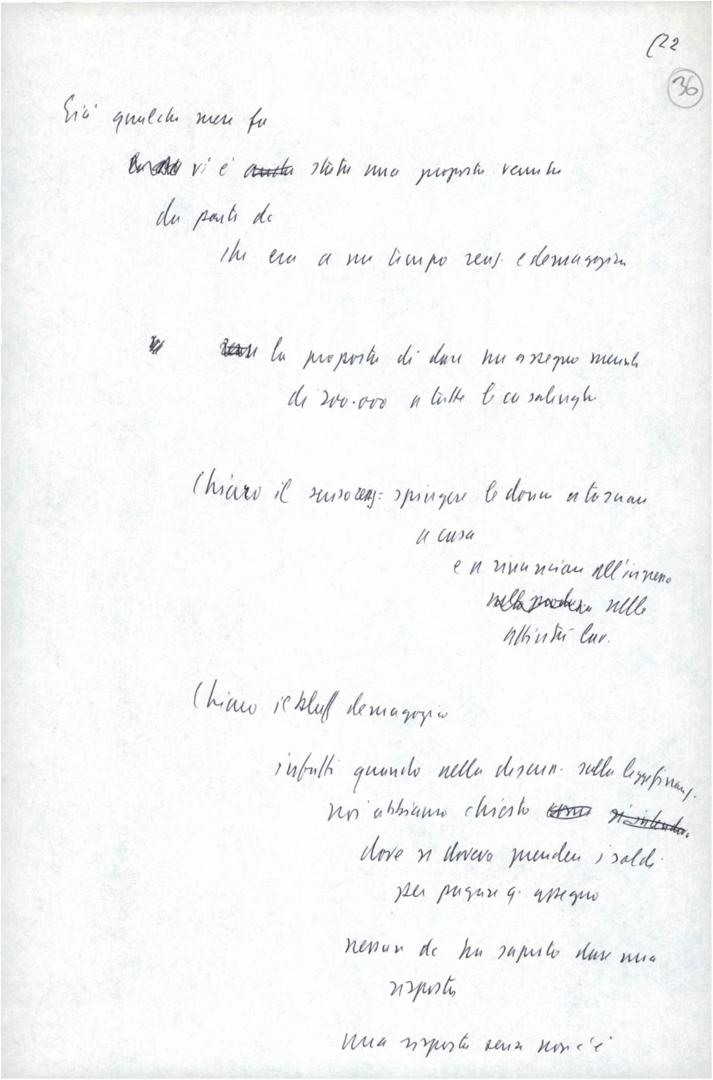 (22
36
Già qualche mese fa
vi è stata una proposta venuta
da parte dc
che era a un tempo reaz. e demagogica
la proposta di dare un assegno mensile
di 200.000 a tutte le casalinghe
Chiaro il senso reaz= spingere le donne a tornare
a casa
e a rinunciare all'ingresso
nelle
attività lav.
Chiaro il bluff demagogico
infatti quando nella discuss. sulla legge finanz.
noi abbiamo chiesto
dove si doveva prendere i soldi
per pagare q. assegno
nessun dc ha saputo dare una
risposta
una risposta seria non c'è